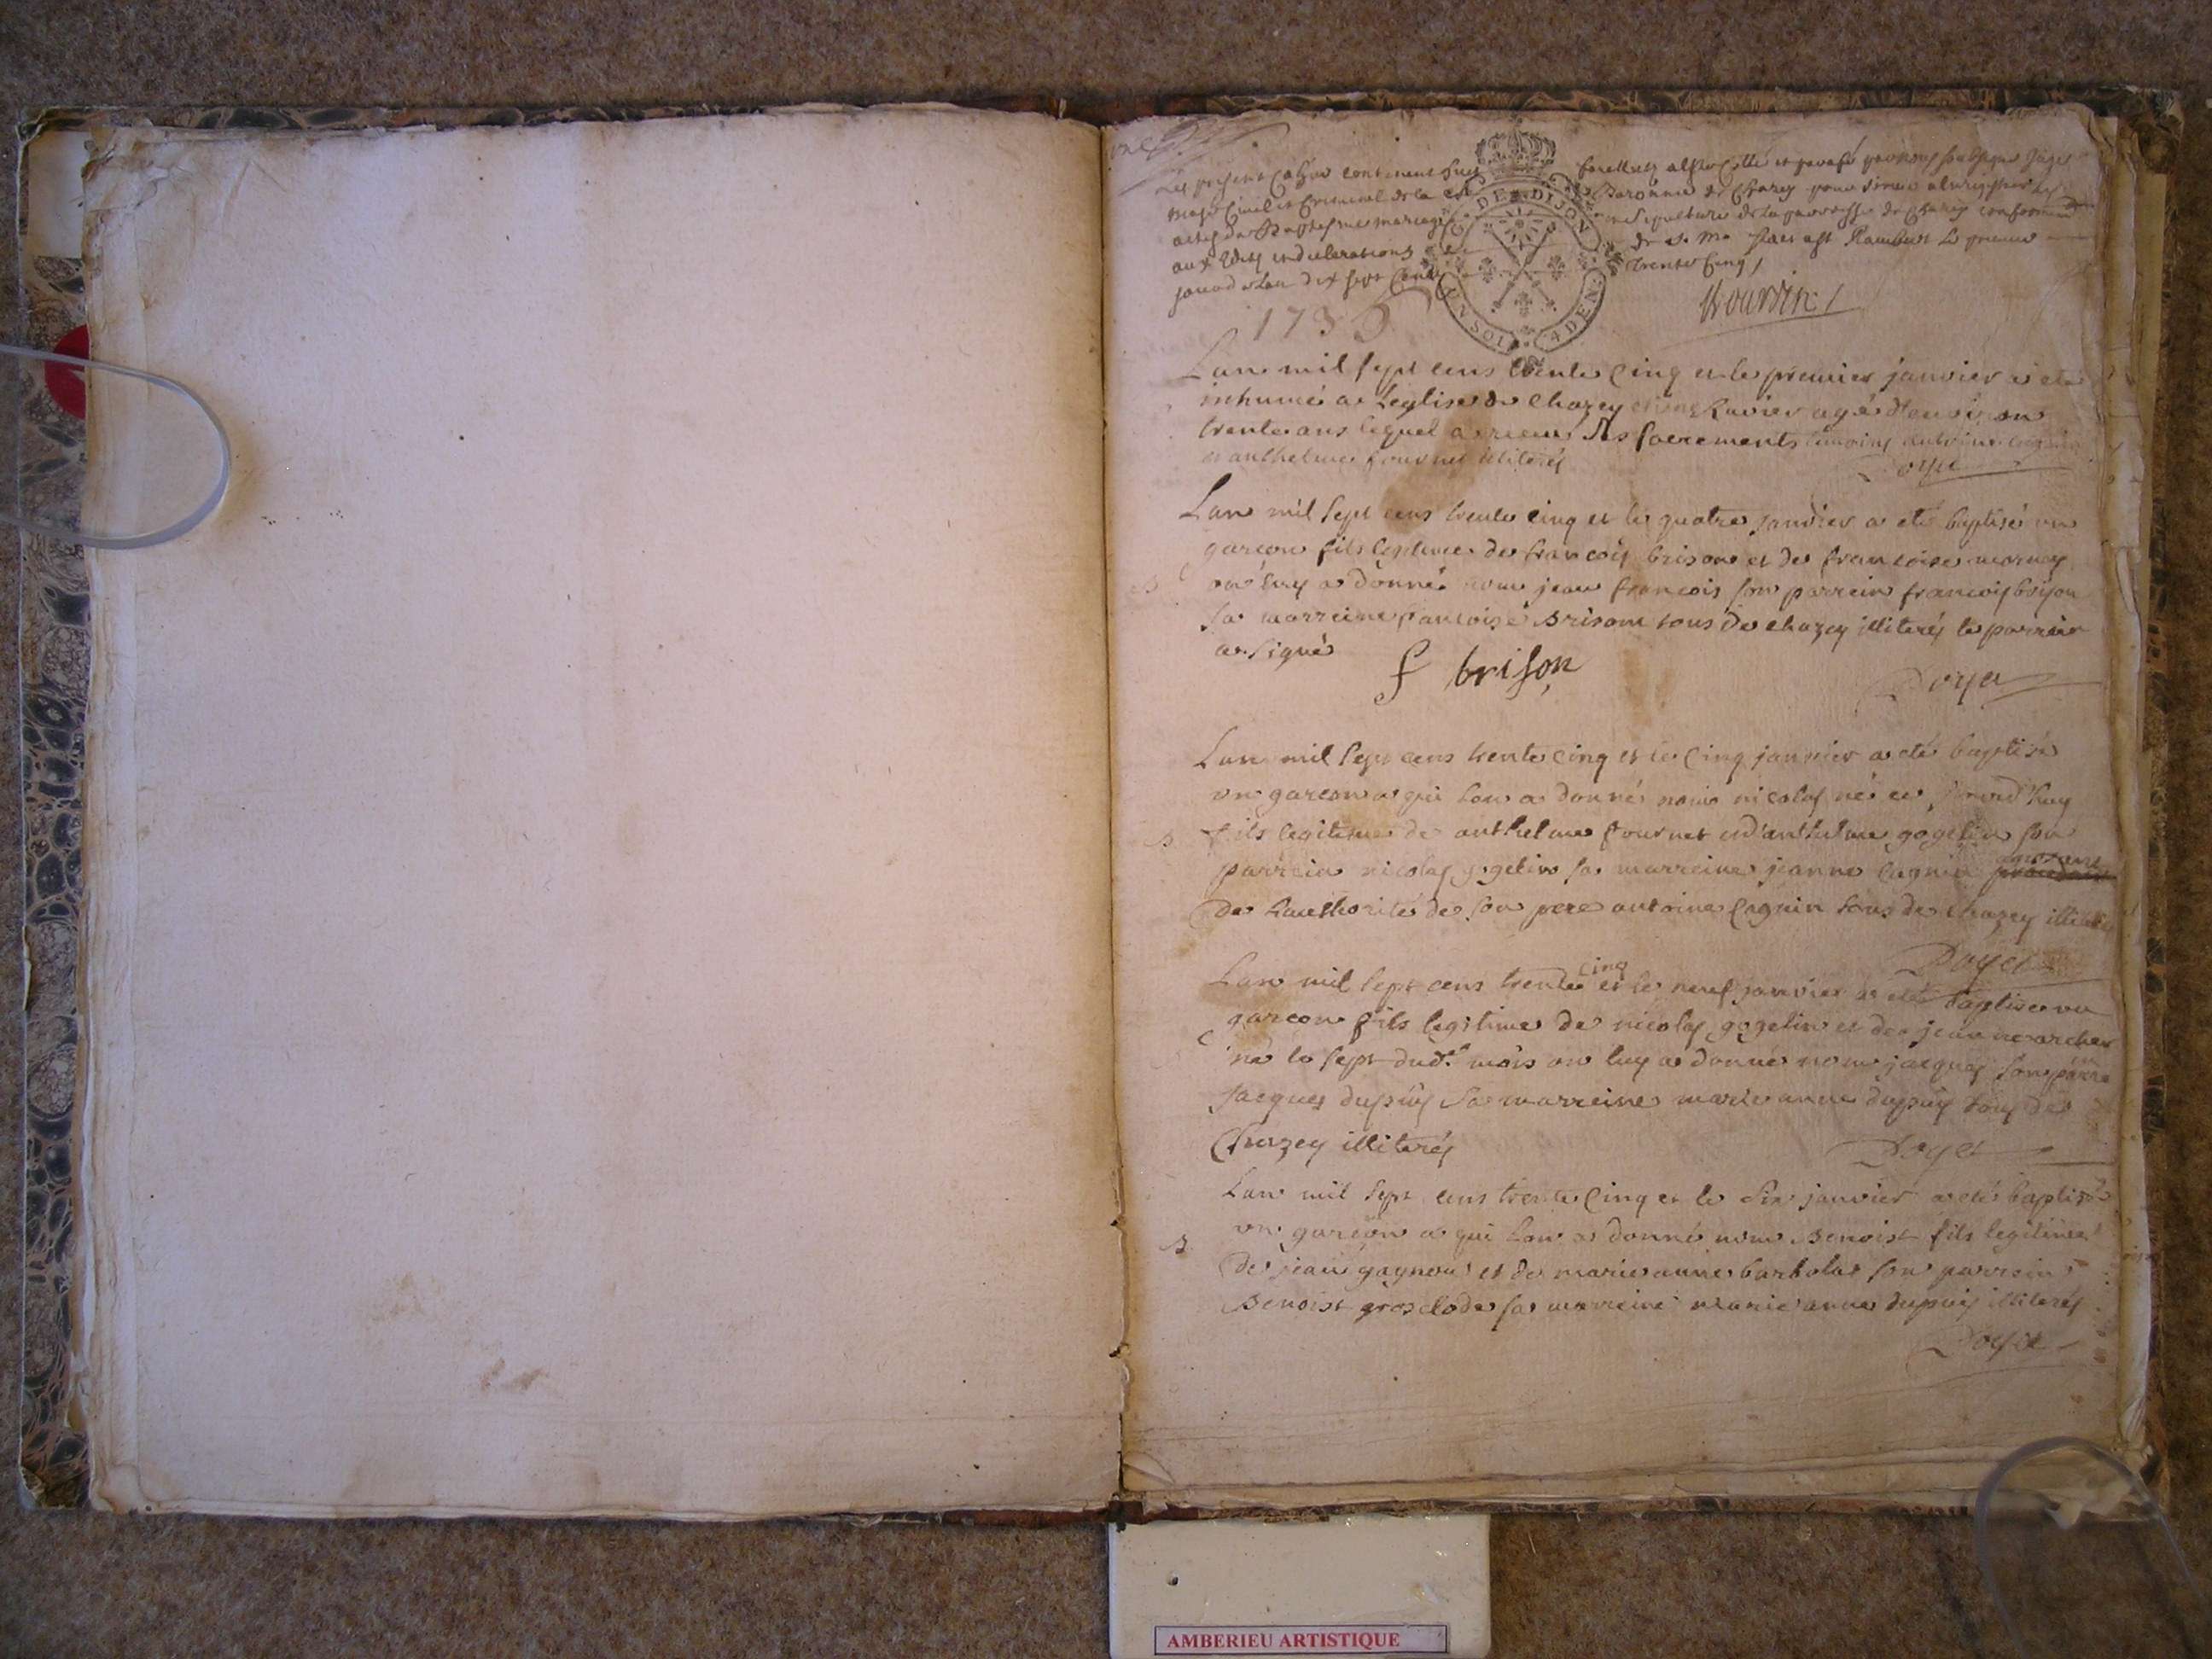 Le present Cahier contenant huit feuillets a esté Cotté et parafé par nous soubsigné Juge
mage Civil et Criminel de la Baronnie de Chazey pour servir a enregistrer les
actes de Baptesme mariage et sepulture de la parroisse de Chazey conformement
aux Edits et declarations de s. m. fait a st Rambert le premier
janvier L'an dix sept Cent trente Cinq /
DE DIJON
UN SOL 4 DEN.
1735
Lan mil sept cens trente Cinq et le premier janvier a eté
inhumé a Leglise de Chazey Ravier agé d'environ
trente ans lequel a receu les sacrements temoins antoine
et anthelme fournet illiterés
Doyet
Lan mil sept cens trente cinq et le quatre janvier a eté baptisé un
garçon fils legitime de francois brison et de francoise
on luy a donné nom jean francois son parrein francois brison
sa marreine francoise Brison tous de chazey illiterés le parrein
a signé
f brison
Doyet
Lan mil sept cens trente Cinq et le Cinq janvier a eté baptisé
un garcon a qui lon a donné nom nicolas né
fils legitime de anthelme fournet et d'anthelme gogelin son
parrein nicolas gogelin sa marreine jeanne Cagnin
de Lauthorité de son pere antoine Cagnin tous de Chazey illiterés
Doyet
Lan mil sept cens trente cinq et le neuf janvier a eté baptisé un
garcon fils legitime de nicolas gogelin et de jeanne archer
né le sept dud.t mois on luy a donné nom jacques son parrein
Jacques dupuis sa marreine marie anne dupuis tous de
Chazey illiterés
Doyet
Lan mil sept cens trente Cinq et le six janvier a eté baptisé
B
un garcon a qui lon a donné nom Benoist fils legitime
de jean gagneur et de marie anne barbolat son parrein
Benoist grosclode sa marreine marie anne dupuis illiterés
Doyet
AMBERIEU ARTISTIQUE